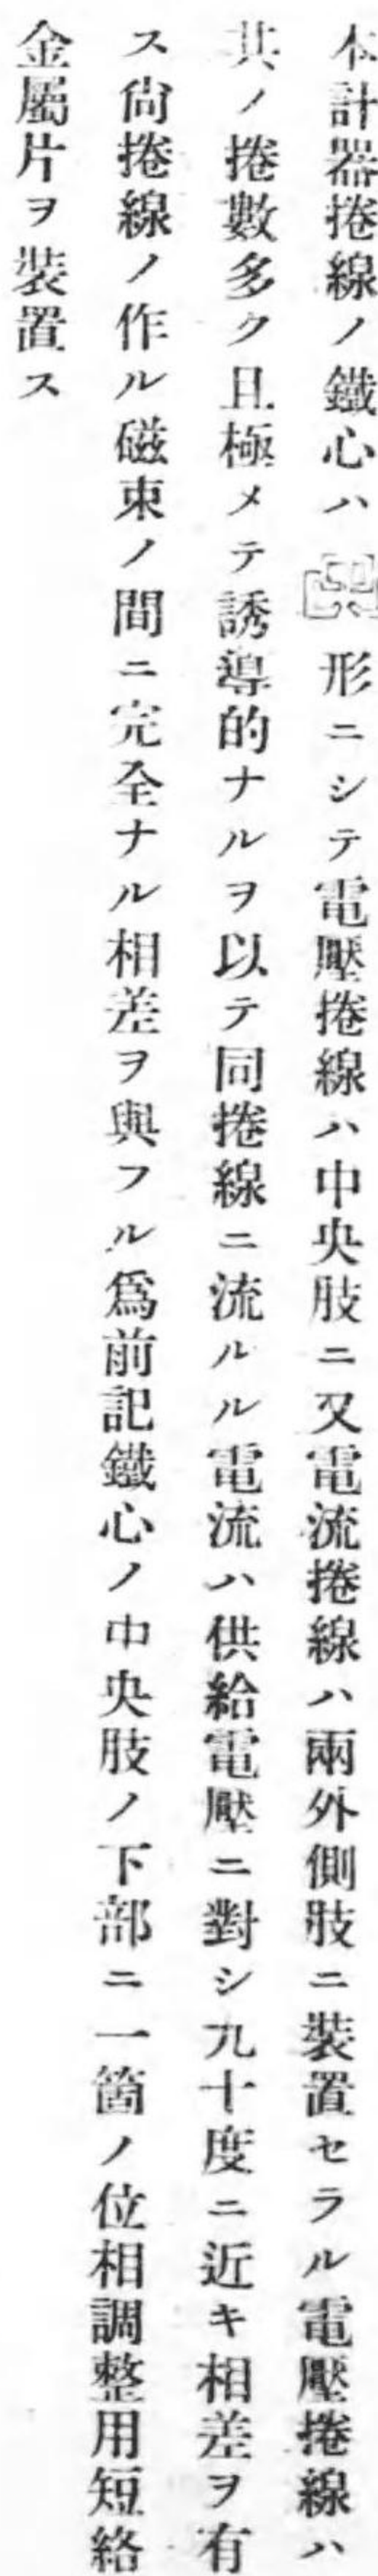 本計器捲線ノ鐵心ハ形ニシテ電壓捲線ハ中央肢ニ又電流捲線ハ兩外側肢ニ裝置セラル電壓捲線ハ
其ノ捲數多ク且極メテ誘導的ナルヲ以テ同捲線ニ流ルル電流ハ供給電壓ニ對シ九十度ニ近キ相差ヲ有
ス尙捲線ノ作ル磁束ノ間ニ完全ナル相差ヲ與フル爲前記鐵心ノ中央肢ノ下部ニ一箇ノ位相調整用短絡
金屬片ヲ裝置ス